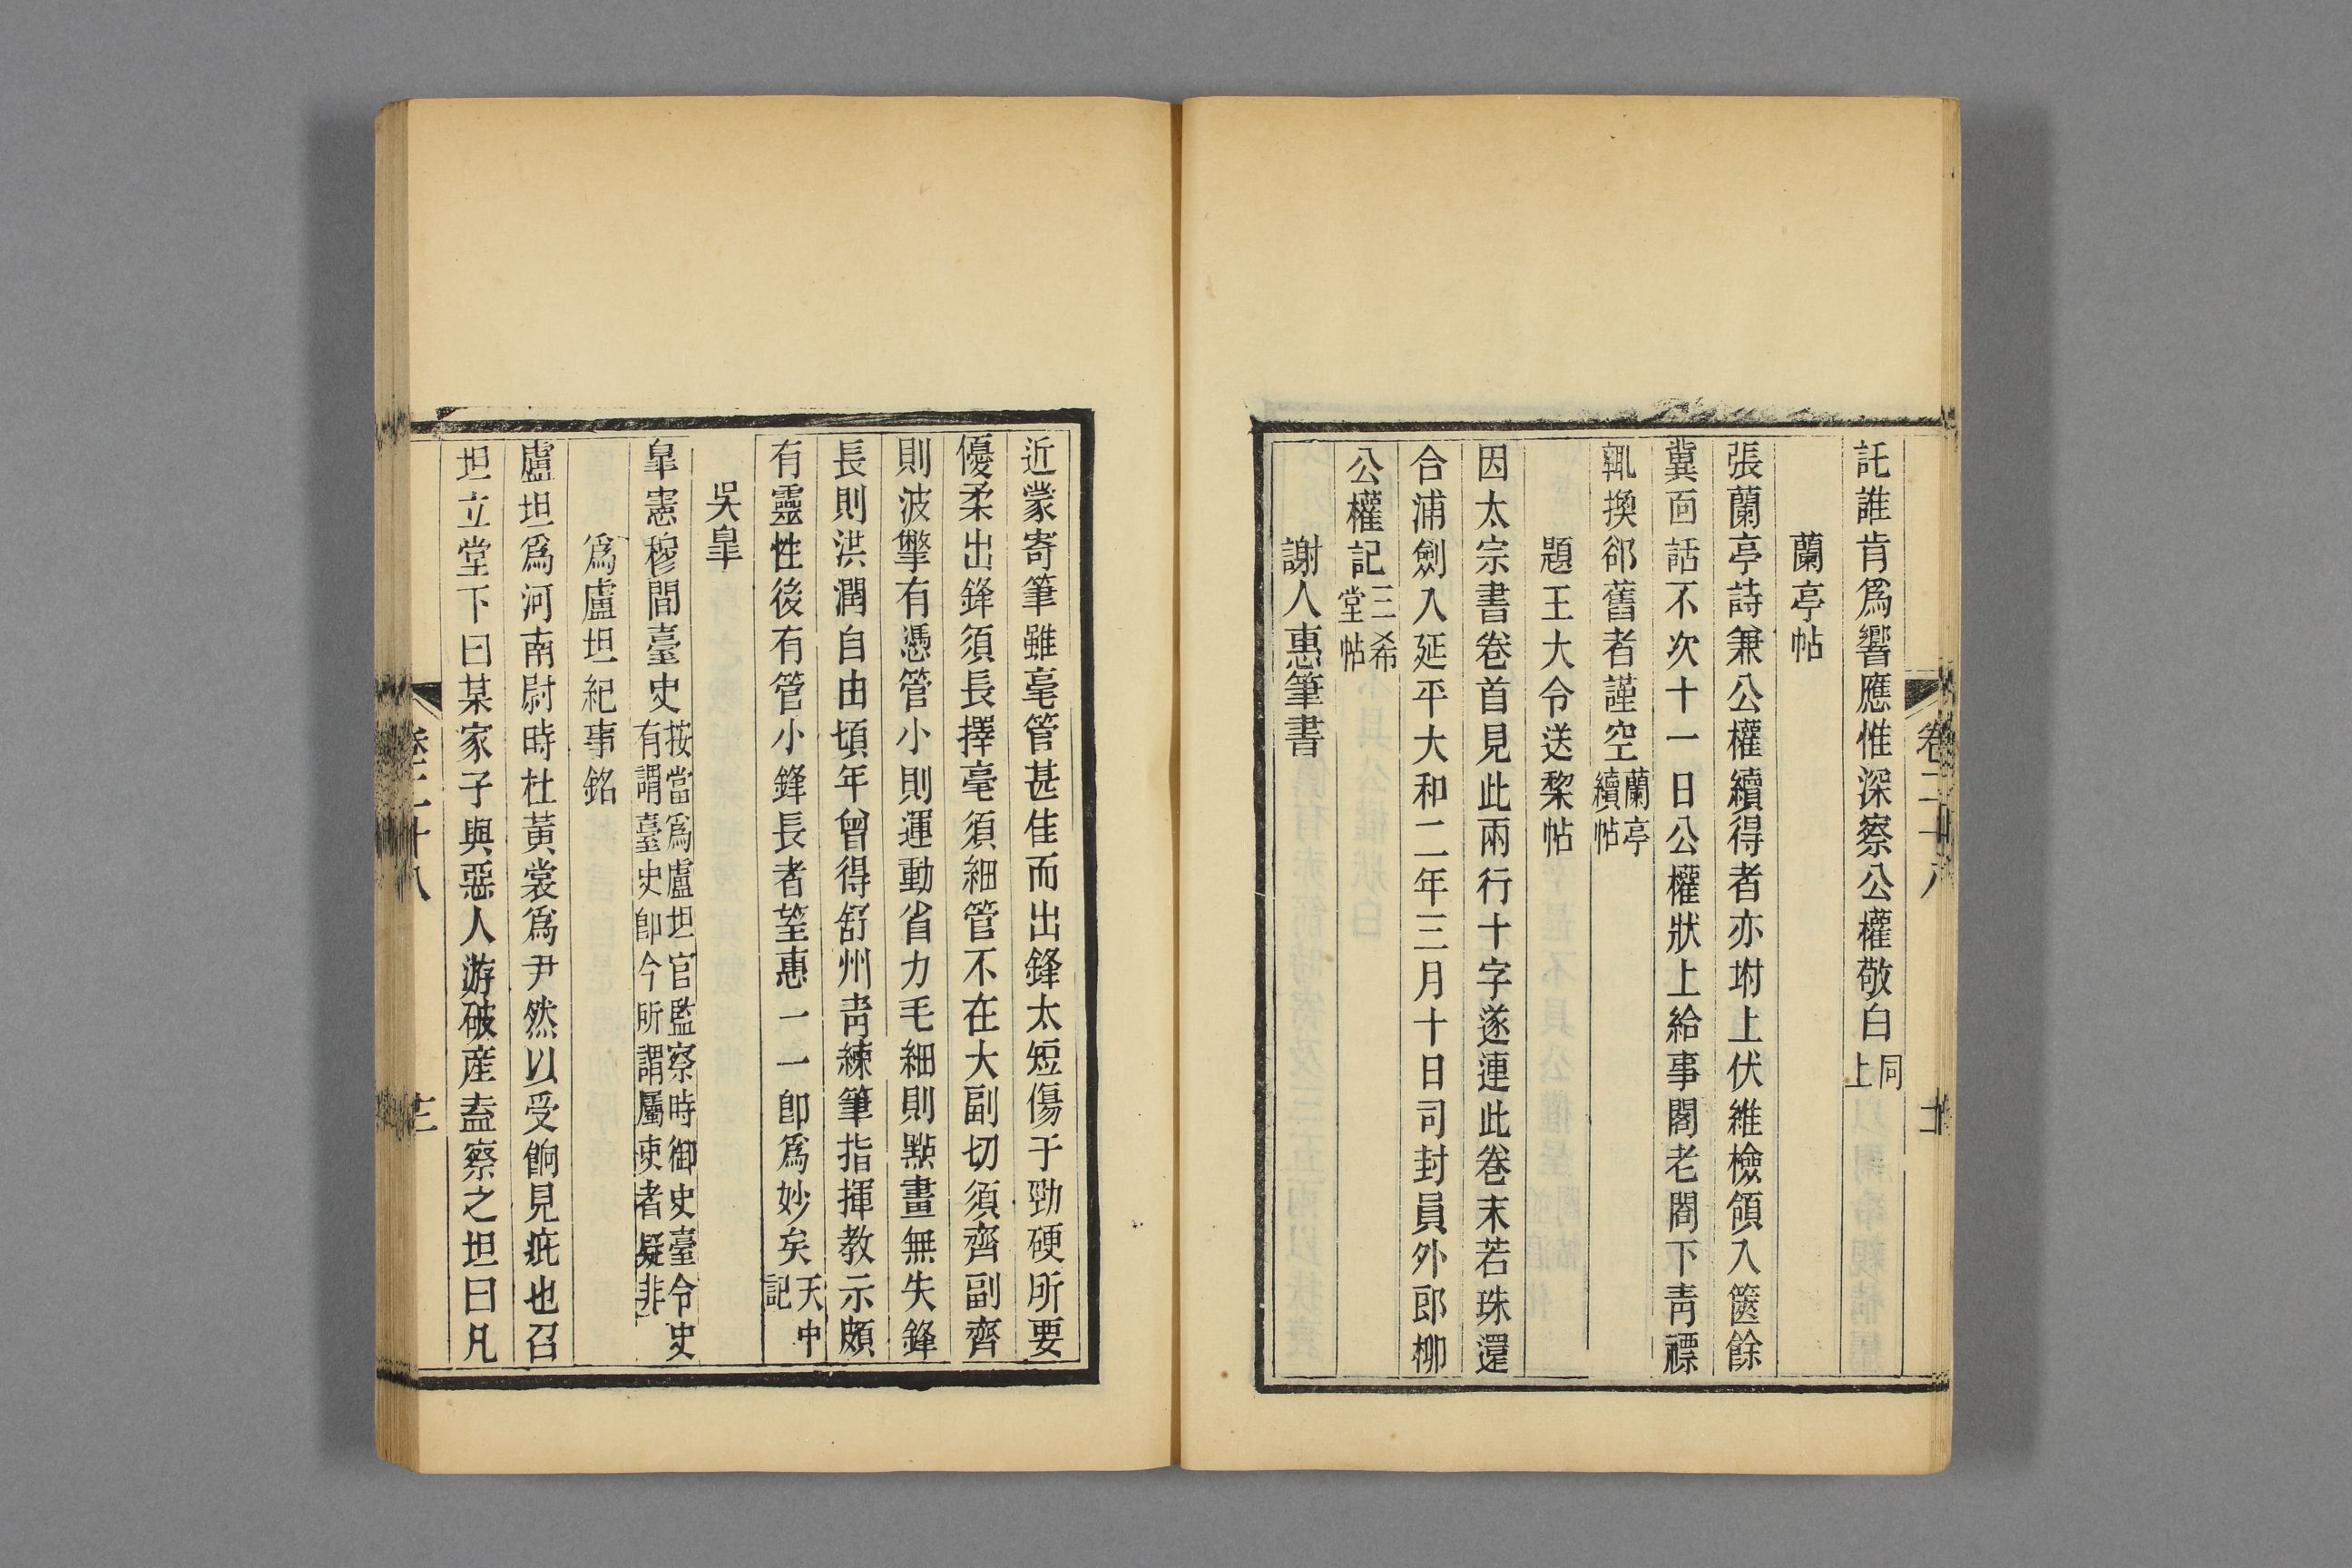 託誰肯爲響應惟深察公權敬白同上
蘭亭帖
張蘭亭詩兼公權續得者亦坿上伏維檢領入篋餘
冀面話不次十一日公權狀上給事閣老閣下靑褾
輒換郤舊者謹空蘭亭續帖
題王大令送棃帖
因太宗書卷首見此兩行十字遂連此卷末若珠還
合浦劍入延平大和二年三月十日司封員外郎柳
公權記三希堂帖
謝人惠筆書
近蒙寄筆雖毫管甚佳而出鋒太短傷于勁硬所要
優柔出鋒須長擇毫須細管不在大副切須齊副齊
則波擎有憑管小則運動省力毛細則點畫無失鋒
長則洪潤自由頃年曾得舒州靑練筆指揮教示頗
有靈性後有管小鋒長者望惠一一卽爲妙矣天中記
吳臯
臯憲穆間臺史按當爲盧坦官監察時御史臺令史有謂臺史卽今所謂屬吏者疑非
爲盧坦紀事銘
盧坦爲河南尉時杜黃裳爲尹然以受餉見疵也召
坦立堂下曰某家子與惡人游破產盍察之坦曰凡
卷二十八